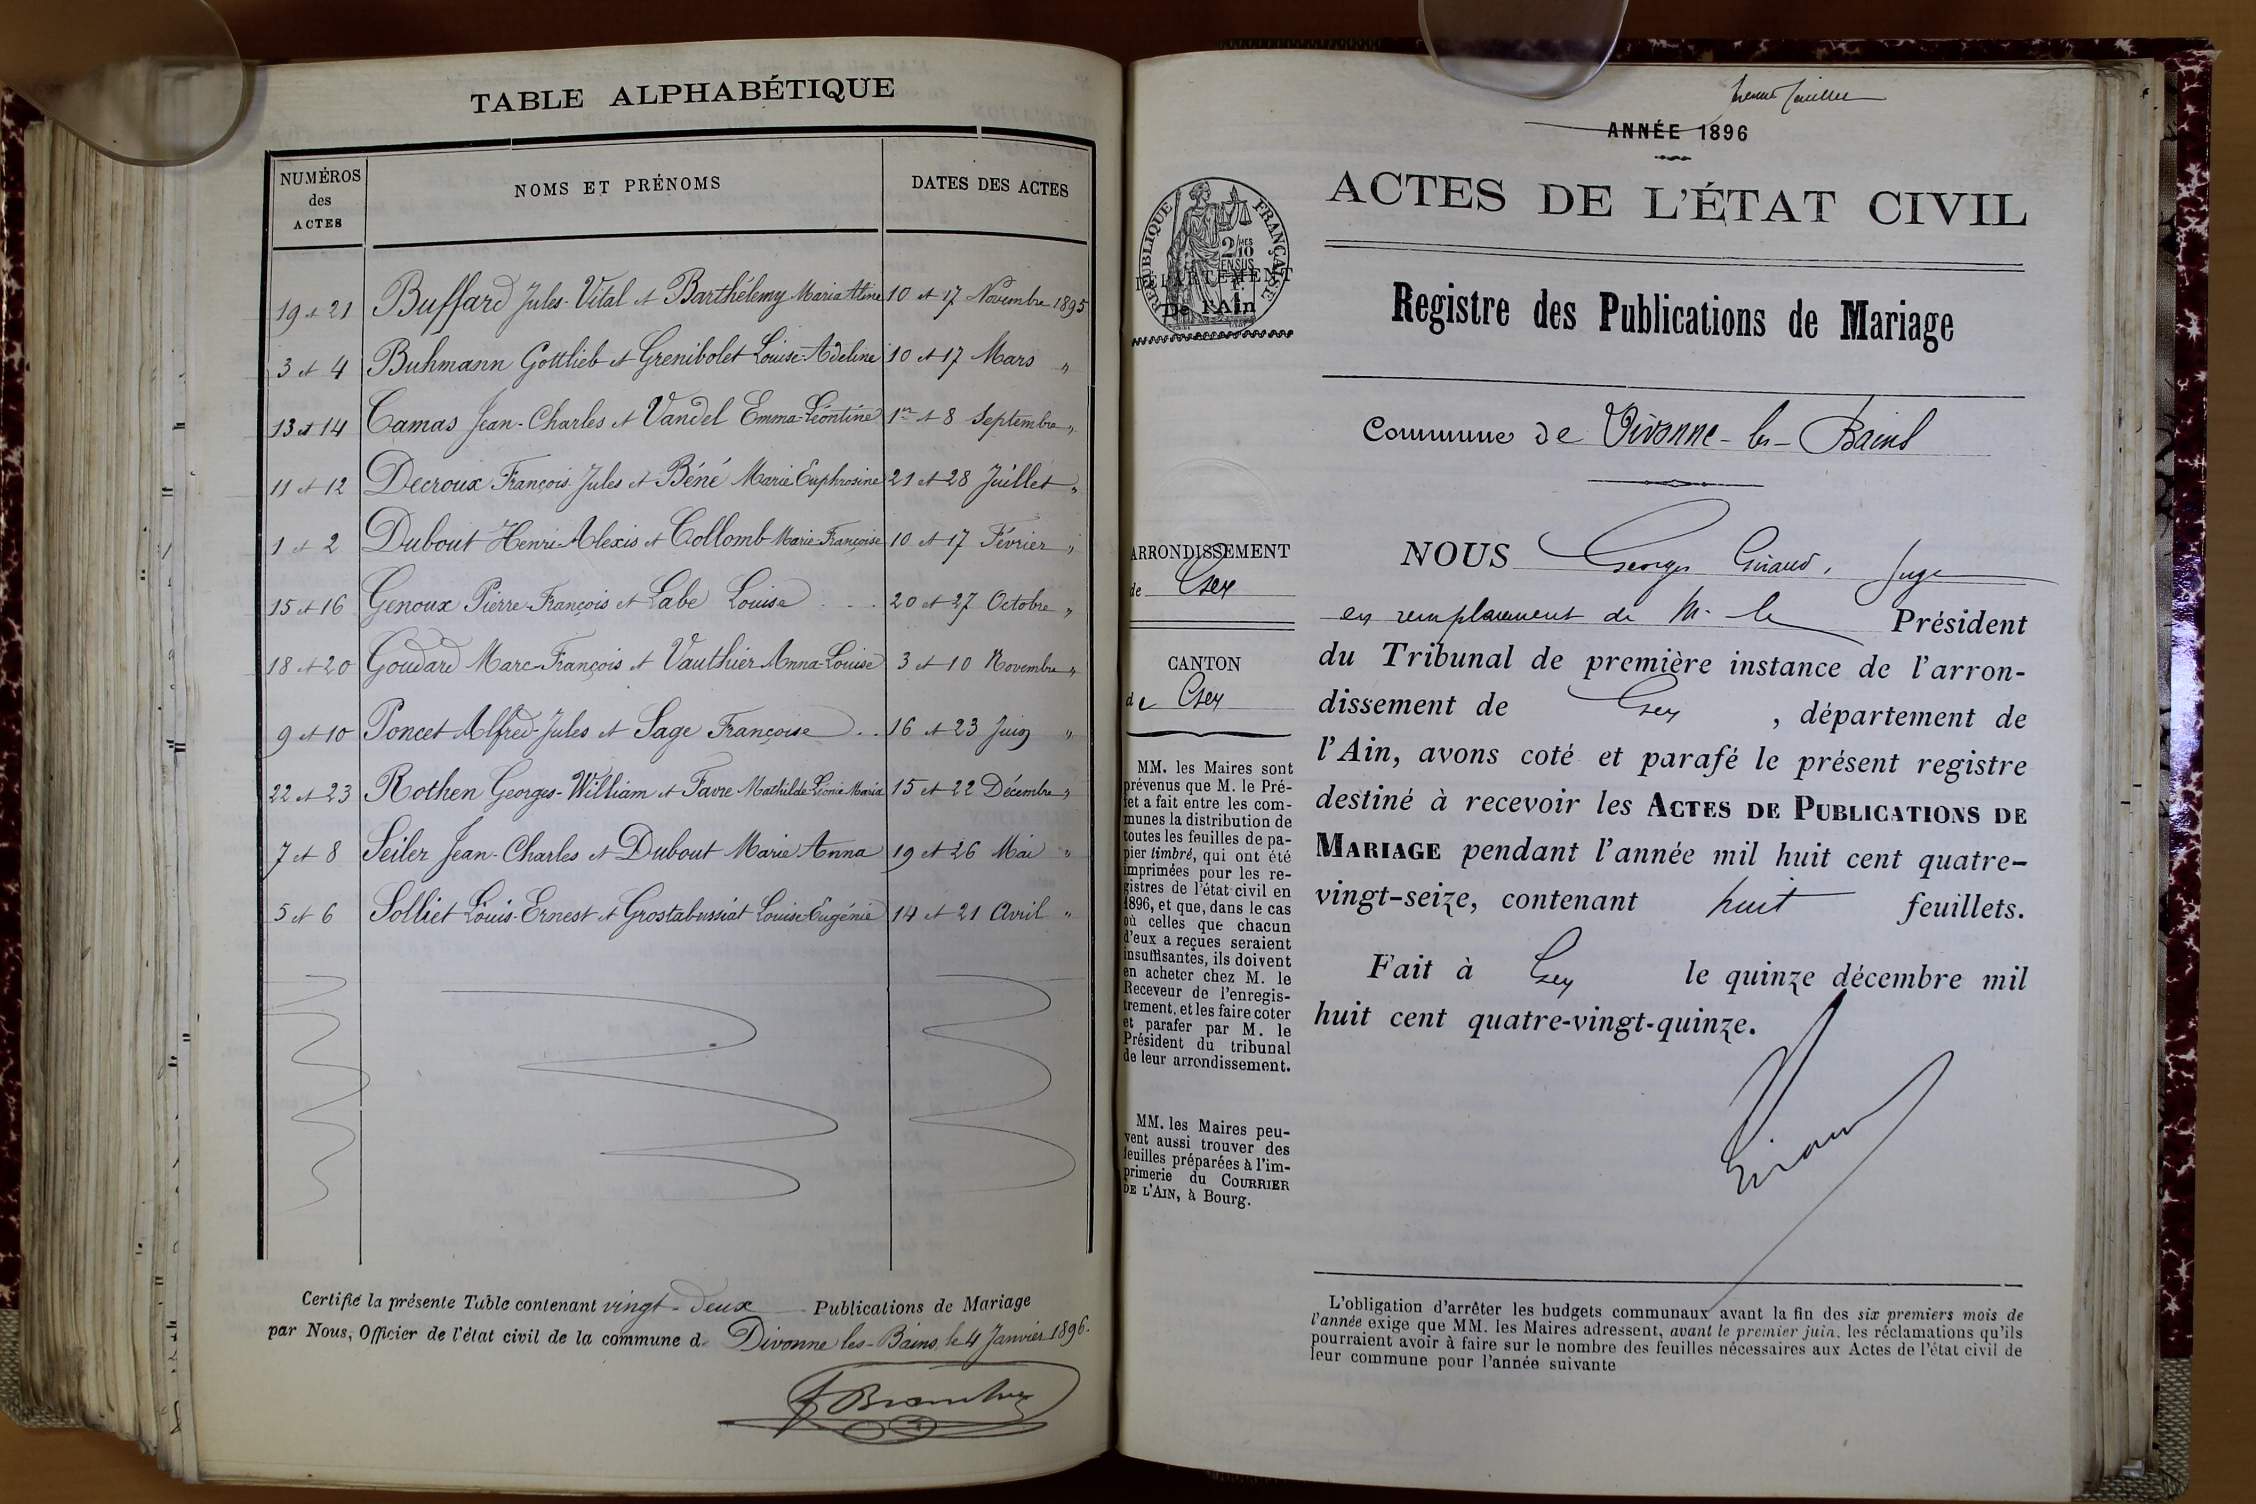 TABLE ALPHABÉTIQUE
NUMÉROS des ACTES
NOMS ET PRÉNOMS
DATES DES ACTES
19 et 21 Buffard Jules-Vital et Barthélemy Maria Aline 10 et 17 Novembre 1895
3 et 4 Buhmann Gottlieb et Grenibolet Louise-Adeline 10 et 17 Mars "
13 et 14 Camas Jean-Charles et Vandel Emma-Léontine 1er et 8 Septembre "
11 et 12 Decroux François Jules et Béné Marie Euphrosine 21 et 28 Juillet "
1 et 2 Dubout Henri-Alexis et Collomb Marie-Françoise 10 et 17 Février "
15 et 16 Genoux Pierre-François et Labe Louise . . . 20 et 27 Octobre "
18 et 20 Goudard Marc-François et Vauthier Anna-Louise 3 et 10 Novembre "
9 et 10 Poncet Alfred-Jules et Sage Françoise . . 16 et 23 Juin "
22 et 23 Rothen Georges-William et Favre Mathilde-Léonie-Maria 15 et 22 Décembre "
7 et 8 Seiler Jean-Charles et Dubout Marie Anna 19 et 26 Mai "
5 et 6 Solliet Louis-Ernest et Grostabussiat Louise-Eugénie 14 et 21 Avril "
Certifié la présente Table contenant vingt-deux Publications de Mariage
par Nous, Officier de l'état civil de la commune d. Divonne les-Bains, le 4 Janvier 1896.
ANNÉE 1896
ACTES DE L'ÉTAT CIVIL
RÉPUBLIQUE FRANÇAISE
2/10 MES
EN SUS
DÉPARTEMENT
De l'Ain
Registre des Publications de Mariage
Commune de Divonne-les-Bains
ARRONDISSEMENT
de Gex
CANTON
de Gex
MM. les Maires sont
prévenus que M. le Pré-
fet a fait entre les com-
munes la distribution de
toutes les feuilles de pa-
pier timbré, qui ont été
imprimées pour les re-
gistres de l'état civil en
1896, et que, dans le cas
où celles que chacun
d'eux a reçues seraient
insuffisantes, ils doivent
en acheter chez M. le
Receveur de l'enregis-
trement, et les faire coter
et parafer par M. le
Président du tribunal
de leur arrondissement.
MM. les Maires peu-
vent aussi trouver des
feuilles préparées à l'im-
primerie du COURRIER
DE L'AIN, à Bourg.
NOUS Georges Giraud, Juge
en remplacement de M. le Président
du Tribunal de première instance de l'arron-
dissement de Gex , département de
l'Ain, avons coté et parafé le présent registre
destiné à recevoir les ACTES DE PUBLICATIONS DE
MARIAGE pendant l'année mil huit cent quatre-
vingt-seize, contenant huit feuillets.
Fait à Gex le quinze décembre mil
huit cent quatre-vingt-quinze.
Giraud
L'obligation d'arrêter les budgets communaux avant la fin des six premiers mois de
l'année exige que MM. les Maires adressent, avant le premier juin, les réclamations qu'ils
pourraient avoir à faire sur le nombre des feuilles nécessaires aux Actes de l'état civil de
leur commune pour l'année suivante